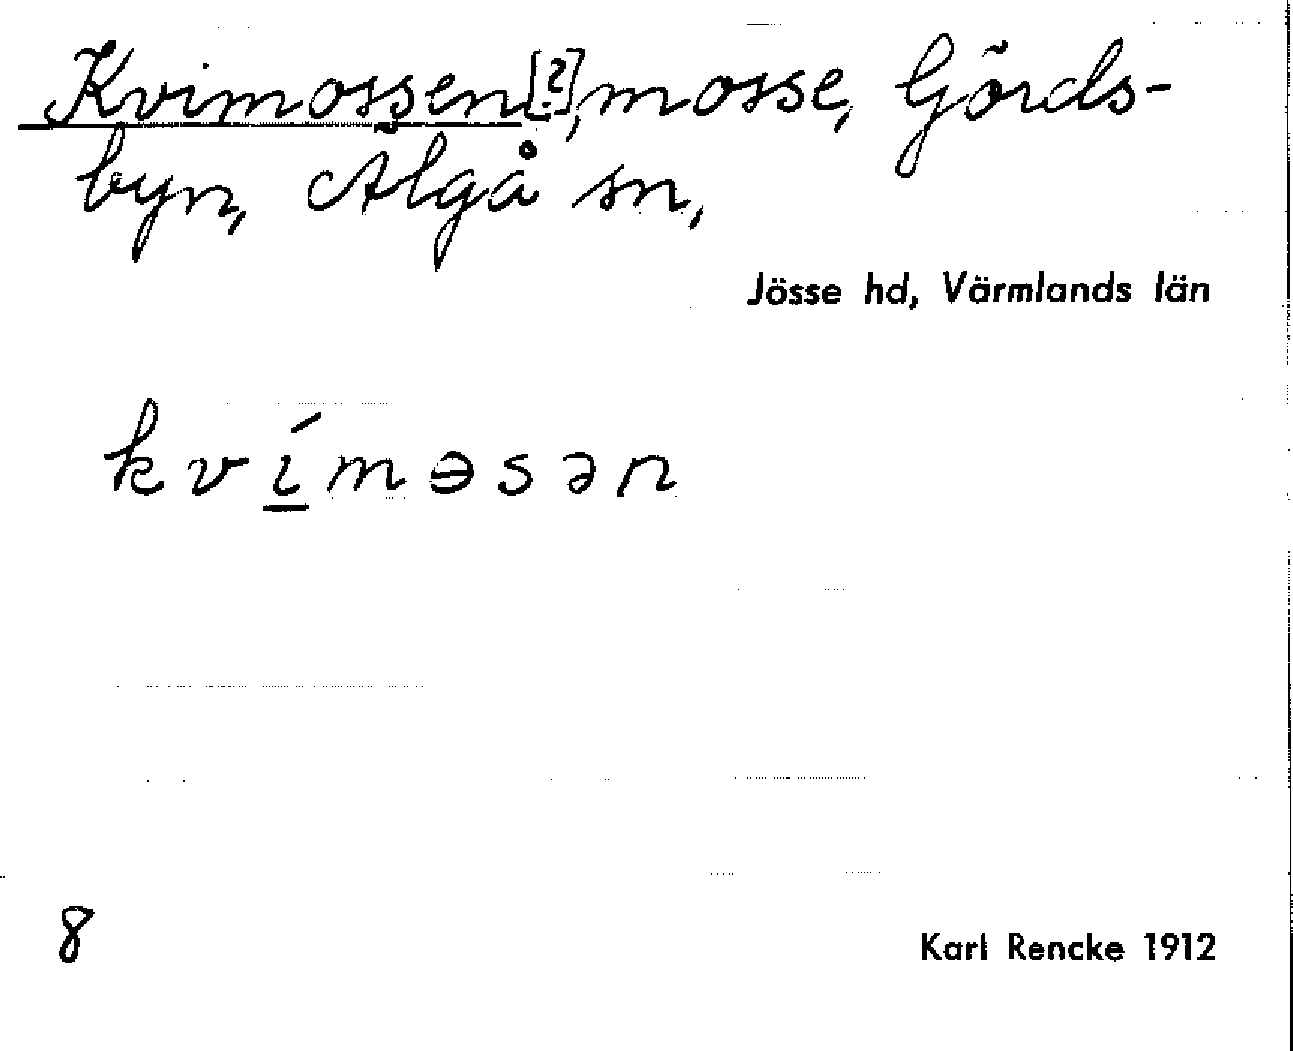 Kvimossen[?], mosse, Görds-
byn, Älgå sn,
Jösse hd, Värmlands län
kv<u>í</u>mɵsən
8
Karl Rencke 1912